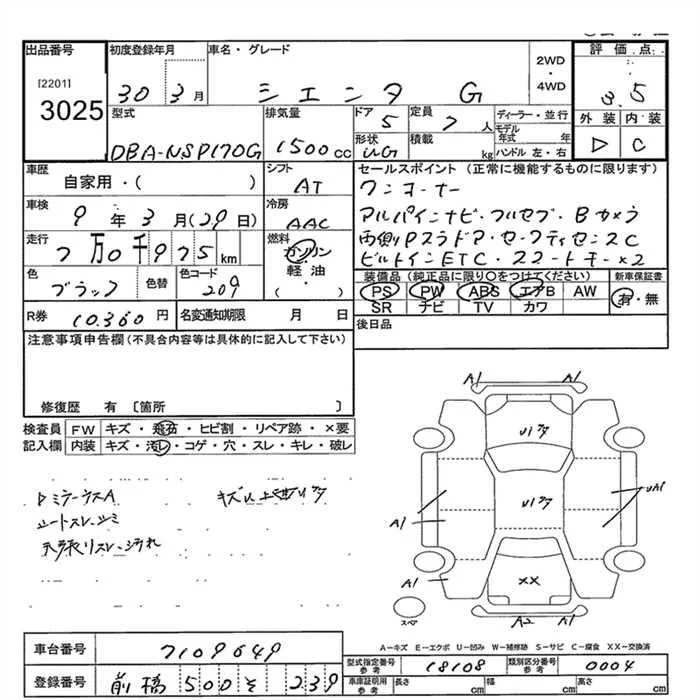 出品番号 初度登録年月 車名・グレード 2WD・4WD 評価点
[2201]
3025
30年 3月 シエンタ G 3.5
型式 排気量 ドア 定員 ディーラー・並行 外装 内装
DBA-NSP170G 1500cc 5 7人 モデル年式 年
形状 積載 kg ハンドル 左・右 D C
車歴 シフト セールスポイント (正常に機能するものに限ります)
自家用・( ) AT ワンオーナー
車検 冷房 アルパインナビ・フルセグ・Bカメラ
9年 3月(29日) AAC 両側Pスラドア・セーフティセンスC
走行 燃料 ビルトインETC・スマートキー×2
7万0千975km ガソリン・軽油・( )
色 色替 色コード 装備品 (純正品に限り○をつけてください) 新車保証書
ブラック 209 PS PW ABS エアB AW 有・無
SR ナビ TV カワ
R券 10.360円 名変通知期限 月 日 後日品
注意事項申告欄(不具合内容等は具体的に記入して下さい)
修復歴 有 〔箇所 〕
検査員 FW キズ・飛石・ヒビ割・リペア跡・×要
記入欄 内装 キズ・汚レ・コゲ・穴・スレ・キレ・破レ
A1 A1
U1
U1
A1 UA1
A1 XX A1
スペア A2 A1
A-キズ E-エクボ U-凹み W-補修跡 S-サビ C-腐食 XX-交換済
車台番号 7109649 型式指定番号 参考 18108 類別区分番号 参考 0004
登録番号 前橋 500 そ 239 車庫証明用 参考 長さ cm 幅 cm 高さ cm